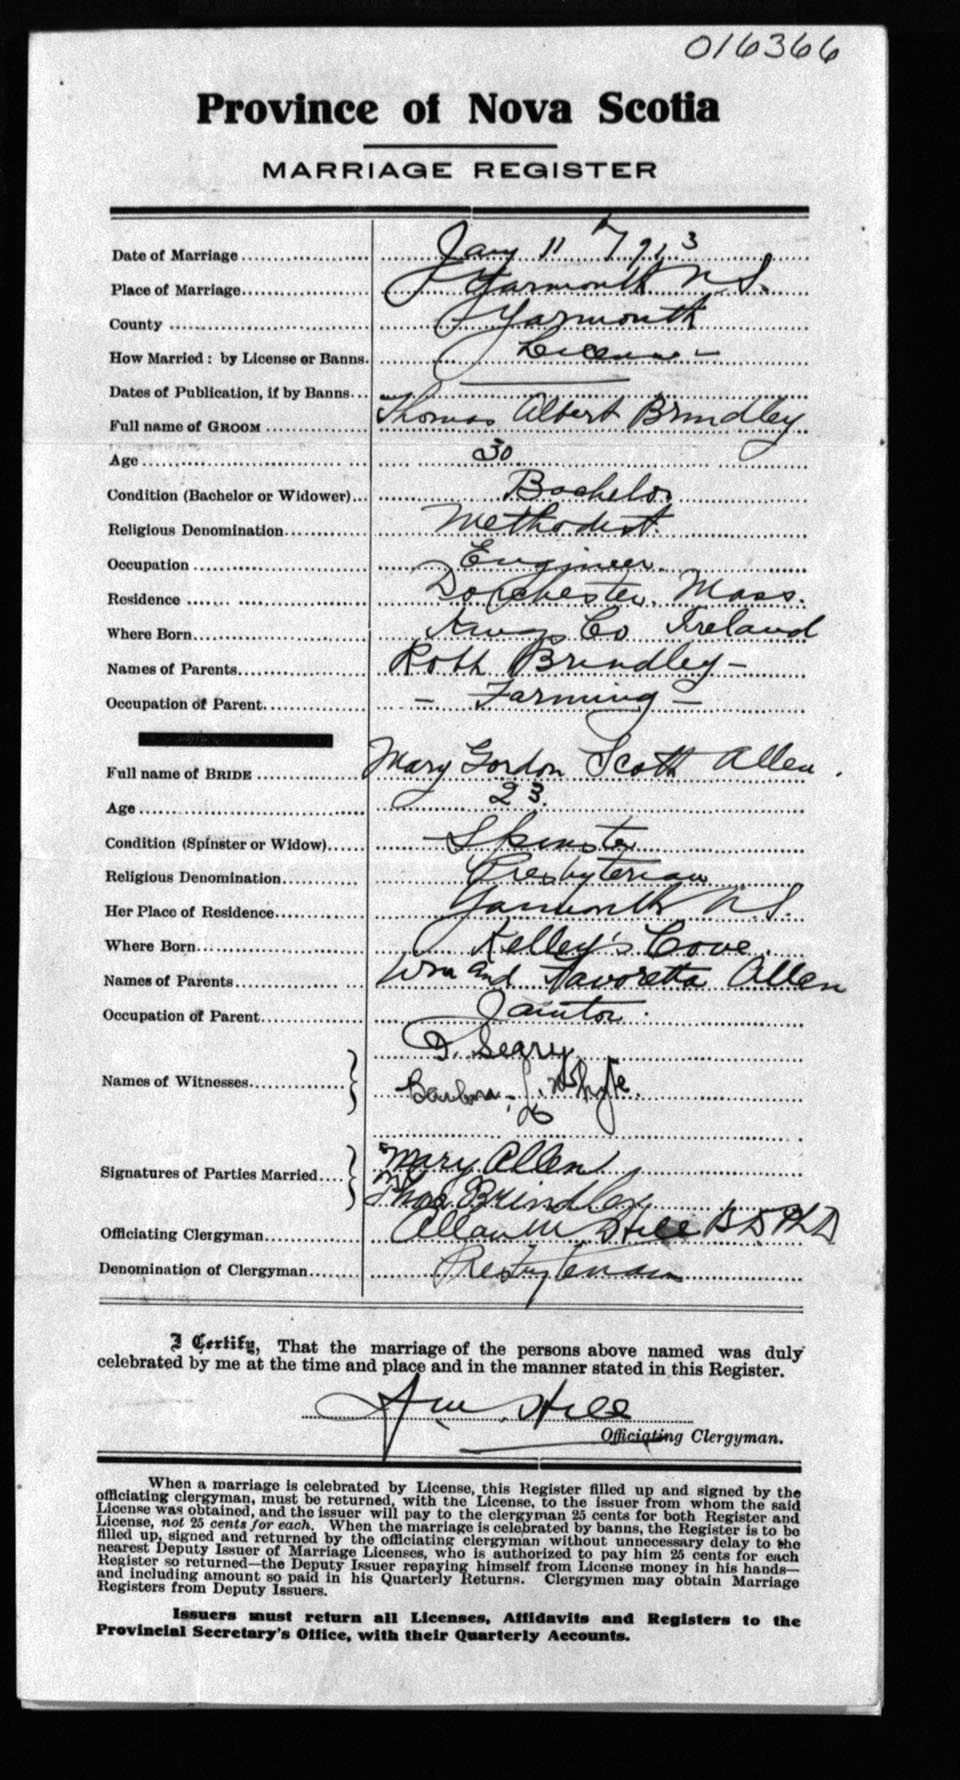 016366
Province of Nova Scotia
MARRIAGE REGISTER
Date of Marriage Jany 11th / 913
Place of Marriage Yarmouth N.S.
County Yarmouth
How Married: by License or Banns. License -
Dates of Publication, if by Banns
Full name of GROOM Thomas Albert Brindley
Age 30
Condition (Bachelor or Widower) Bachelor
Religious Denomination Methodist
Occupation Engineer.
Residence Dorchester. Mass.
Where Born Kings Co Ireland
Names of Parents Robt Brindley -
Occupation of Parent - Farming -
Full name of BRIDE Mary Gordon Scott Allen.
Age 23.
Condition (Spinster or Widow) Spinster
Religious Denomination Presbyterian
Her Place of Residence Yarmouth N.S.
Where Born Kelley's Cove.
Names of Parents Wm and Favoretta Allen
Occupation of Parent
D. Seary
Names of Witnesses Barbara J. Whyte.
Mary Allen
Signatures of Parties Married
Thos Brindley
Officiating Clergyman Allan M. Hill B D Ph D
Denomination of Clergyman Presbyterian
I Certify, That the marriage of the persons above named was duly
celebrated by me at the time and place and in the manner stated in this Register.
A M. Hill
Officiating Clergyman.
When a marriage is celebrated by License, this Register filled up and signed by the
officiating clergyman, must be returned, with the License, to the issuer from whom the said
License was obtained, and the issuer will pay to the clergyman 25 cents for both Register and
License, not 25 cents for each. When the marriage is celebrated by banns, the Register is to be
filled up, signed and returned by the officiating clergyman without unnecessary delay to the
nearest Deputy Issuer of Marriage Licenses, who is authorized to pay him 25 cents for each
Register so returned—the Deputy Issuer repaying himself from License money in his hands—
and including amount so paid in his Quarterly Returns. Clergymen may obtain Marriage
Registers from Deputy Issuers.
Issuers must return all Licenses, Affidavits and Registers to the
Provincial Secretary's Office, with their Quarterly Accounts.